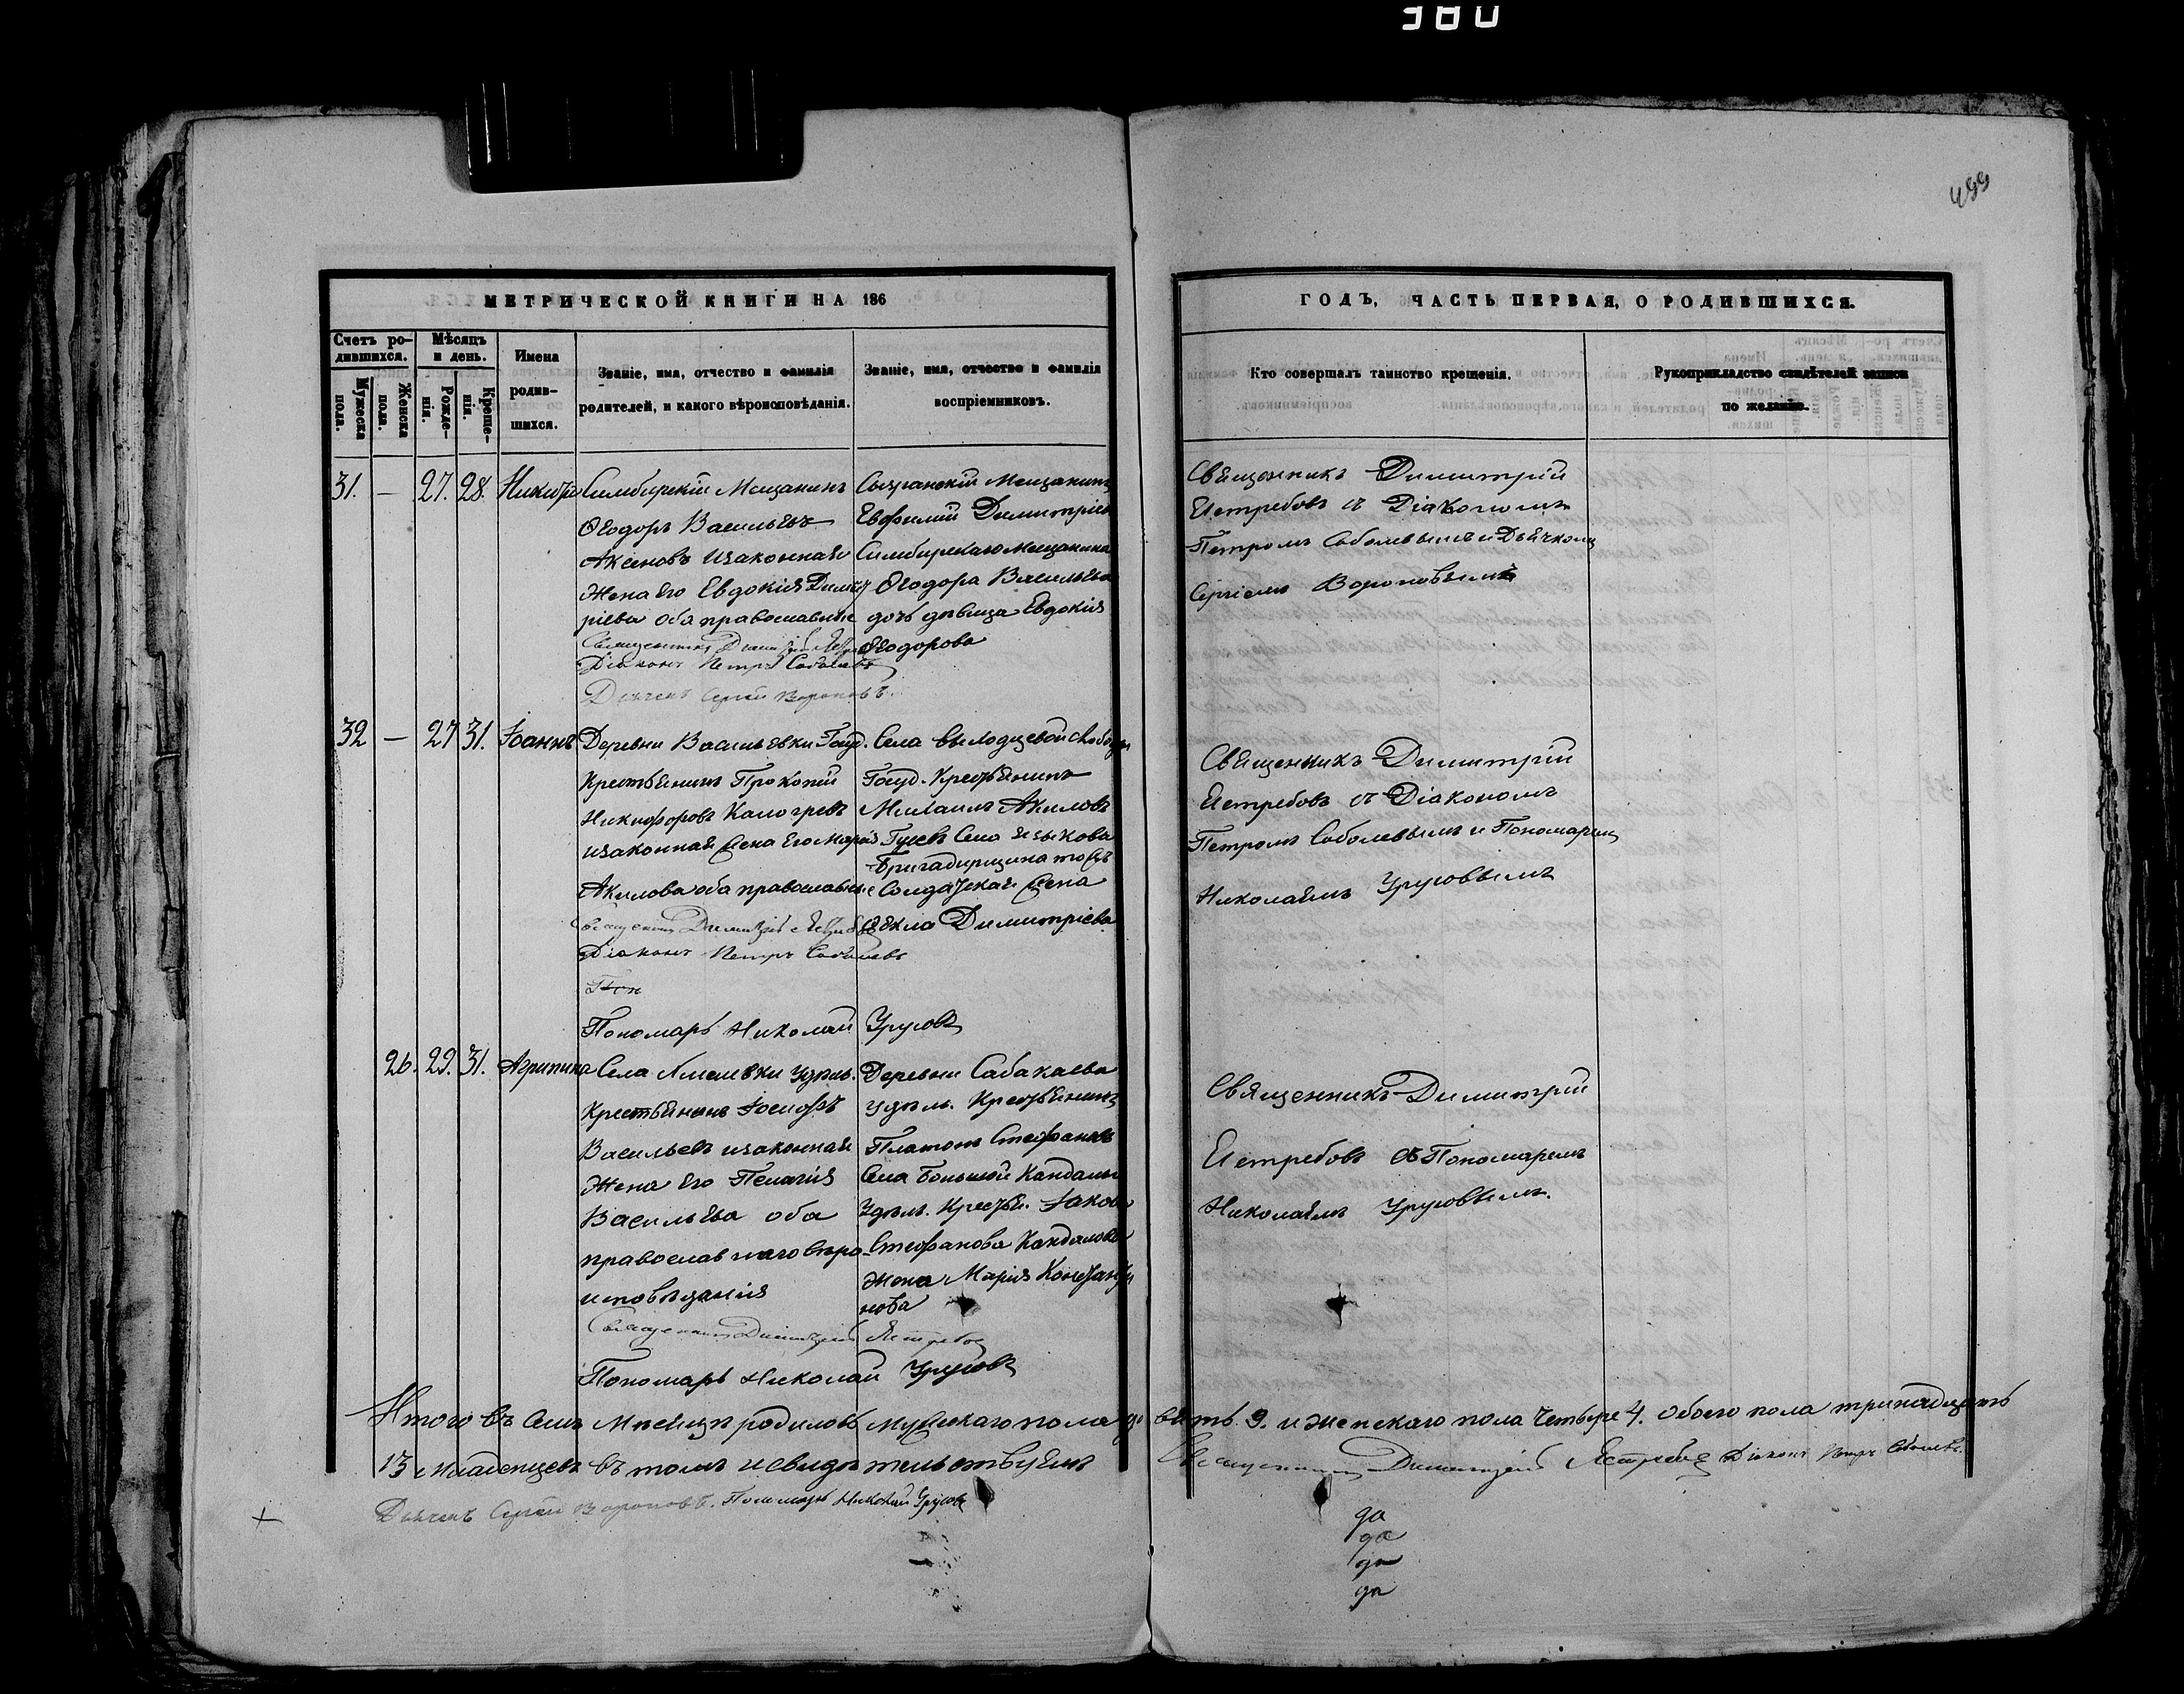 380
499
МЕТРИЧЕСКОЙ КНИГИ НА 186
Счетъ ро-
дившихся.
Мужеска
пола.
Женска
пола.
Мѣсяцъ
и день.
Рожде-
нія.
Креще-
нія.
Имена
родив-
шихся.
Званіе, имя, отчество и фамилія
родителей, и какого вѣроисповѣданія.
Званіе, имя, отчество и фамилія
воспріемниковъ.
31. — 27. 28.
Симбирскій Мещанинъ
Ѳеодоръ Васильевъ
Аксеновъ изаконная
Жена его Евдокія Димит
ріева оба православные
Священникъ Димитрій
Діаконъ Петръ Соболевъ
Дьячекъ Сергей Вороновъ.
Сызранскій Мещанинъ
Евфимій Димитріев
Симбирскаго Мещанина
Ѳеодора Васильева
дочь дѣвица Евдокія
Ѳеодорова
32 — 27 31. Іоаннъ
Деревни Васильевки Госуд.
Крестьянинъ Прокопій
Никифоровъ
изаконная Жена его Марія
Акилова оба православные
Священникъ Димитрій
Діаконъ Петръ Соболевъ
Пон
Пономарь Николай Урусовъ
Села слободы
Госуд. Крестьянинъ
Михаилъ Акиловъ
Гусевъ Села Языкова
Бригадирщина тожъ
Солдатская Жена
Ѳекла Димитріева
26. 29. 31. Агрипина
Села удѣль.
Крестьянинъ Іосифъ
Васильевъ изаконная
Жена его Пелагія
Васильева оба
православнаго вѣро
исповѣданія
Священникъ Димитрій Ястребов
Пономарь Николай Урусовъ
Деревни Сабакаева
удѣль. Крестьянинъ
Платонъ Стефановъ
Села Большой Кандалы
Удѣль. Крестья. Іакова
Стефанова Кандалова
жена Марія Константи
нова
ГОДЪ, ЧАСТЬ ПЕРВАЯ, О РОДИВШИХСЯ.
Кто совершалъ таинство крещенія.
Рукоприкладство свидѣтелей записи
по желанію.
Священникъ Димитрій
Ястребовъ съ Діакономъ
Петромъ Соболевымъ и Дьячкомъ
Сергіемъ Вороновымъ
Священникъ Димитрій
Ястребовъ съ Діакономъ
Петромъ Соболевымъ и Пономаремъ
Николаемъ Урусовымъ
Священникъ Димитрій
Ястребовъ съ Пономаремъ
Николаемъ Урусовымъ.
Итого въ семъ Мѣсяцѣ родилось Мужскаго пола девять 9. и женскаго пола Четыре 4. Обоего пола тринадцать
13 младенцевъ въ томъ и свидѣтельствуемъ Священникъ Димитрій Ястребов Діаконъ Петръ Соболевъ.
Дьячекъ Сергей Вороновъ. Пономарь Николай Урусовъ
да
да
да
да